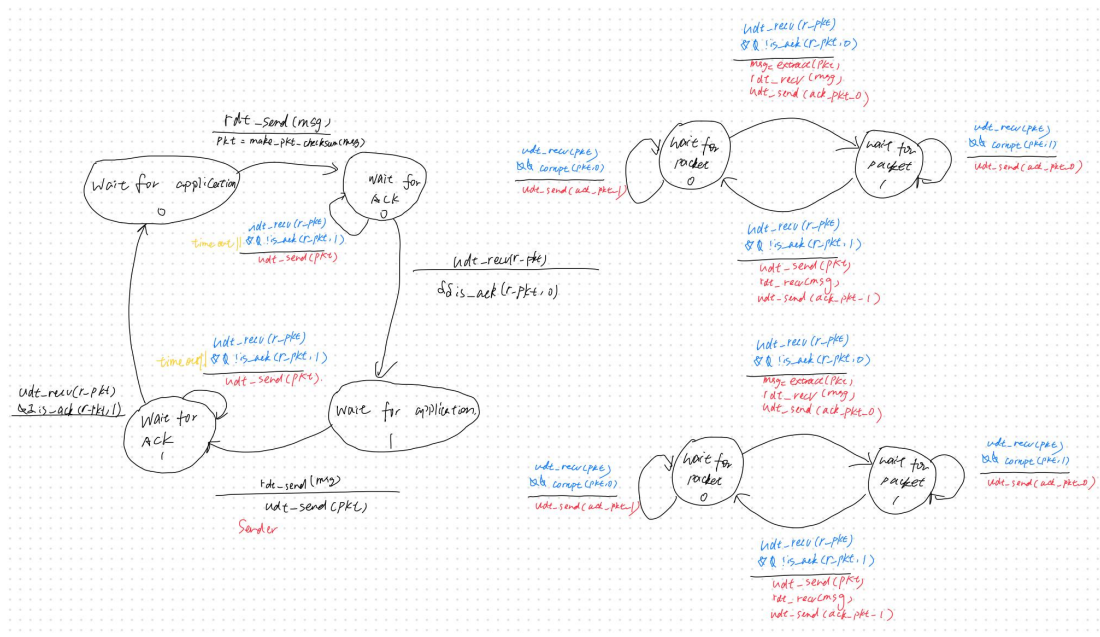 rdt_send(msg)
pkt = make_pkt_checksum(msg)
Wait for application
0
wait for
ACK
0
udt_recv(r_pkt)
timeout|| && !is_ack(r_pkt,1)
udt_send(pkt)
udt_recv(r-pkt)
&& is_ack(r_pkt,0)
udt_recv(r_pkt)
timeout|| && !is_ack(r_pkt,1)
udt_send(pkt).
udt_recv(r_pkt)
&& is_ack(r_pkt,1)
Wait for
ACK
1
Wait for application
1
rdt_send(msg)
udt_send(pkt)
Sender
udt_recv(r_pkt)
&& !is_ack(r_pkt,0)
msg=extract(pkt)
rdt_recv(msg)
udt_send(ack_pkt_0)
udt_recv(pkt)
&& corrupt(pkt,0)
udt_send(ack_pkt_1)
wait for
packet
0
wait for
packet
1
udt_recv(pkt)
&& corrupt(pkt,1)
udt_send(ack_pkt_0)
udt_recv(r_pkt)
&& !is_ack(r_pkt,1)
udt_send(pkt)
rdt_recv(msg)
udt_send(ack_pkt-1)
udt_recv(r_pkt)
&& !is_ack(r_pkt,0)
msg=extract(pkt)
rdt_recv(msg)
udt_send(ack_pkt_0)
udt_recv(pkt)
&& corrupt(pkt,0)
udt_send(ack_pkt_1)
wait for
packet
0
wait for
packet
1
udt_recv(pkt)
&& corrupt(pkt,1)
udt_send(ack_pkt_0)
udt_recv(r_pkt)
&& !is_ack(r_pkt,1)
udt_send(pkt)
rdt_recv(msg)
udt_send(ack_pkt-1)